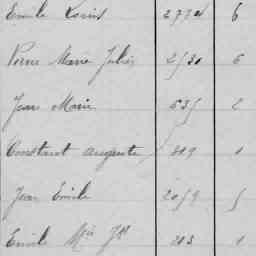 Emile Louis 2772 6
Pierre Marie Julien 2530 6
Jean Marie 535 2
Constant Auguste 309 1
Jean Emile 2059 5
Emile Mie Jh 203 1